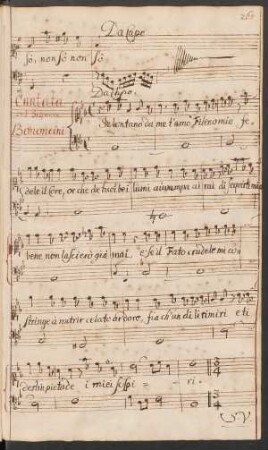 Da Capo
261
so, non so non so
Da Capo.
Cantata
del Signore
Bononcini
Se lontano da me l'amo Filenomio fe,
dele il core, or che de tuoi bei lumi
bene non lascierò già mai e se il Fato crudele mi co,
stringe à nutrir celato ardore, fia ch'un dì ti rimiri e ti
destin pietade i miei sospi - ri.
S V.